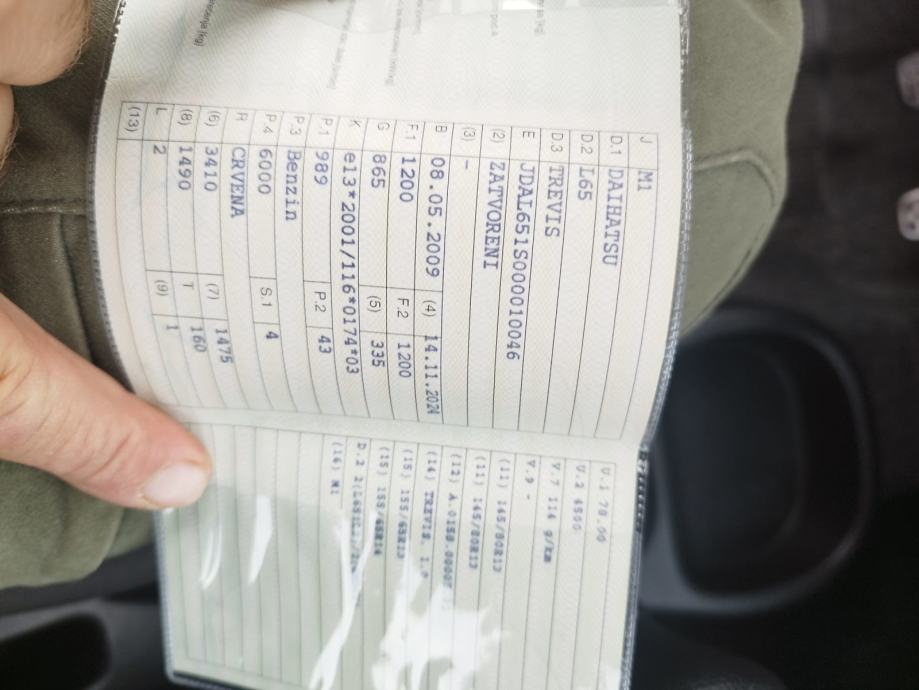 J M1
D.1 DAIHATSU
D.2 L65
D.3 TREVIS
E JDAL651S000010046
(2) ZATVORENI
(3) -
B 08.05.2009 (4) 14.11.2024
F.1 1200 F.2 1200
G 865 (5) 335
K e13*2001/116*0174*03
P.1 989 P.2 43
P.3 Benzin
P.4 6000 S.1 4
R CRVENA
(6) 3410 (7) 1475
(8) 1490 T 160
L 2 (9) 1
(13)
U.1 78.00
U.2 4500
V.7 114 g/km
V.9 -
(11) 145/80R13
(11) 145/80R13
(12)
(14) TREVIS, 1.0
(15) 155/65R13
(15) 155/65R14
D.2
(16) M1
[kg]